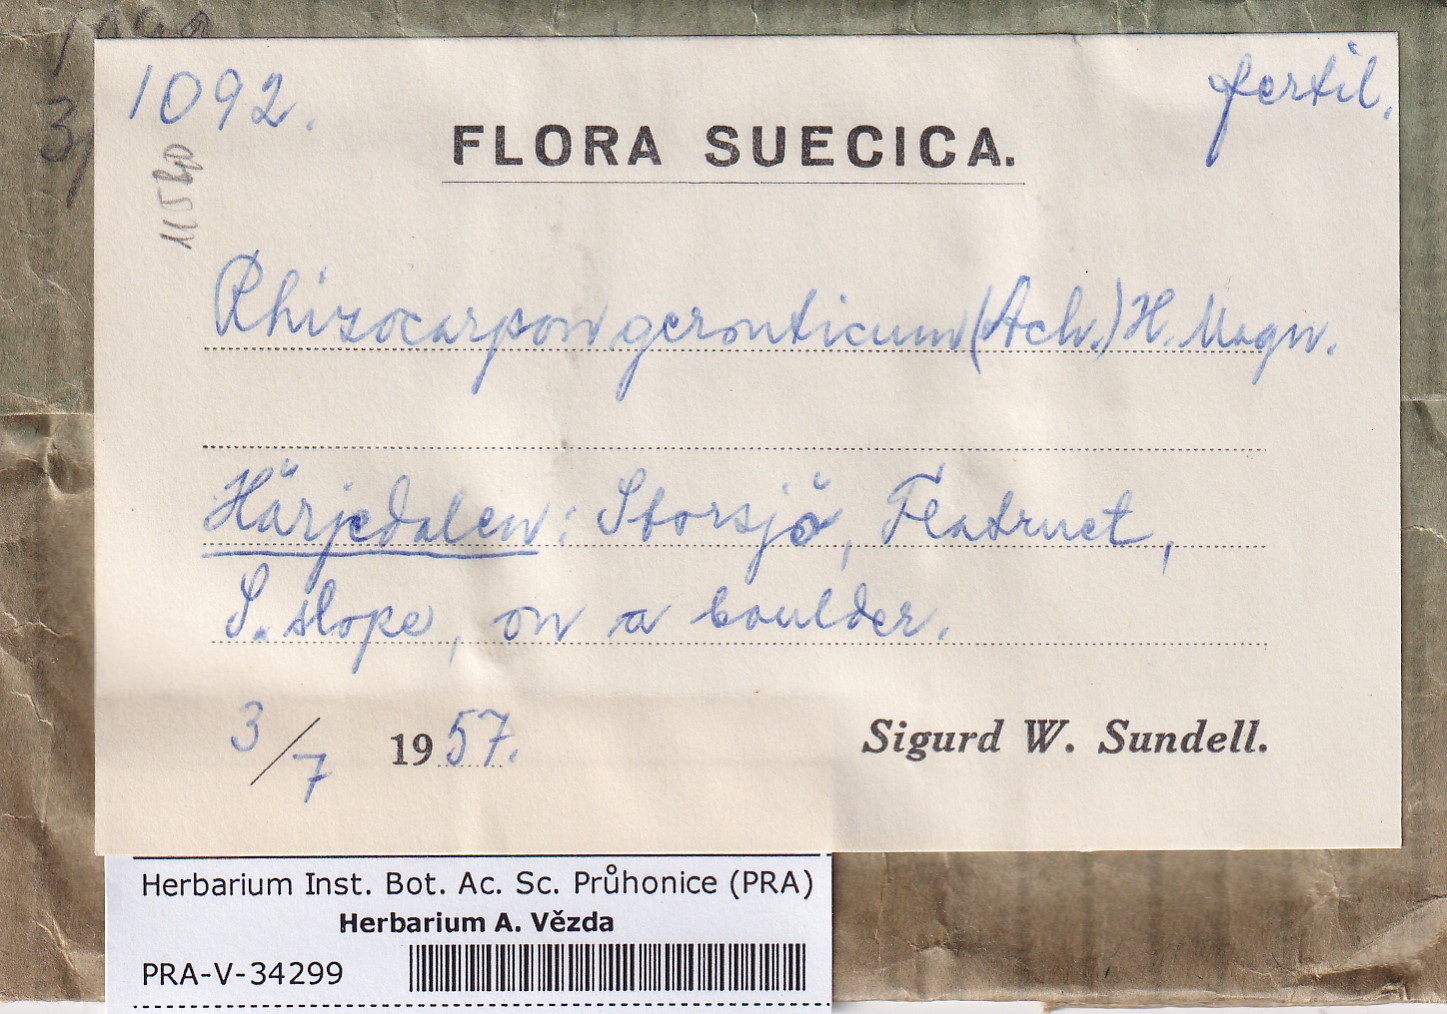 1092.
fertil.
FLORA SUECICA.
Rhizocarpon geronticum (Ach.) H. Magn.
Härjedalen: Storsjö, Flatruet,
S. slope, on a boulder.
3/7 1957.
Sigurd W. Sundell.
Herbarium Inst. Bot. Ac. Sc. Průhonice (PRA)
Herbarium A. Vězda
PRA-V-34299